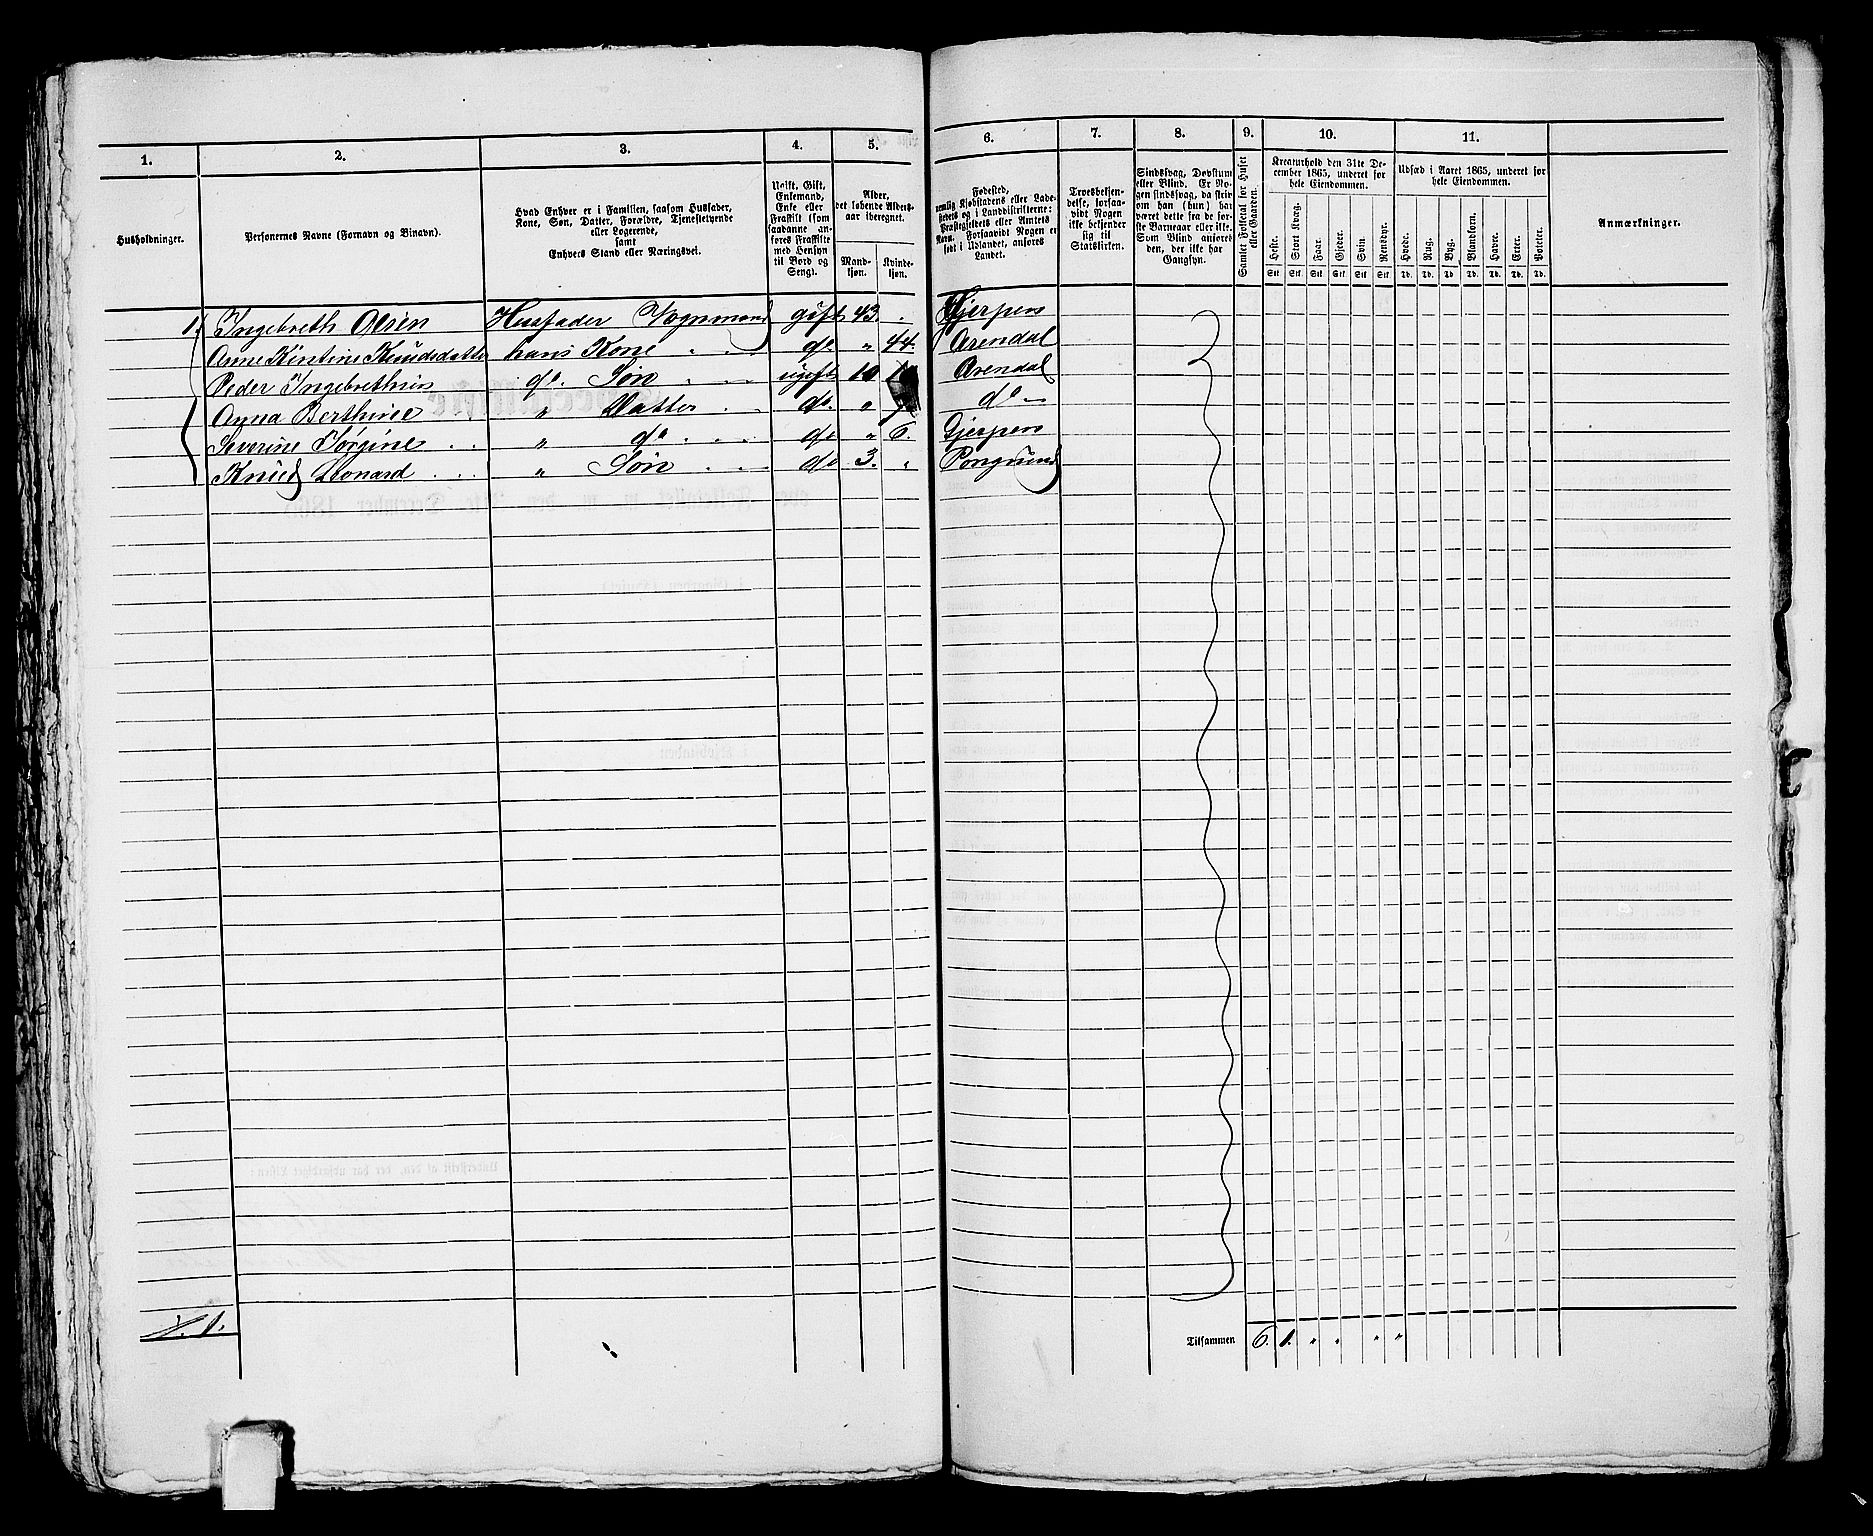 1. 2. 3. 4. 5. 6. 7. 8. 9. 10. 11.
Husholdninger.
Personernes Navne (Fornavn og Binavn).
Hvad Enhver er i Familien, saasom Husfader,
Kone, Søn, Datter, Forældre, Tjenestetyende
eller Logerende,
samt
Enhvers Stand eller Næringsvei.
Ugift, Gift,
Enkemand,
Enke eller
Fraskilt (som
saadanne an-
føres Fraskilte
med Hensyn
til Bord og
Seng).
Alder,
det løbende Alders-
aar iberegnet.
Mand-
kjøn.
Kvinde-
kjøn.
Fødested,
nemlig Kjøbstadens eller Lade-
stedets og i Landdistrikterne:
Præstegjeldets eller Amtets
Navn. Forsaavidt Nogen er
født i Udlandet, anføres
Landet.
Troesbekjen-
delse, forsaa-
vidt Nogen
ikke bekjender
sig til
Statskirken.
Sindssvag, Døvstum
eller Blind. Er No-
gen sindssvag, da skriv
om han (hun) har
været dette fra de for-
ste Barneaar eller ikke.
Som Blind anføres
den, der ikke har
Gangsyn.
Samlet Folketal for Huset
eller Gaarden.
Kreaturhold den 31te De-
cember 1865, underet for
hele Eiendommen.
Heste. Stort Kvæg. Faar. Gjeder. Svin. Rensdyr.
Stk Stk Stk Stk Stk Stk
Udsæd i Aaret 1865, underet for
hele Eiendommen.
Hvede. Rug. Byg. Blandkorn. Havre. Erter. Poteter.
Td. Td. Td. Td. Td. Td. Td.
Anmærkninger.
1. Ingebreth Olsen Husfader Vognmand gift 43. Gjerpen
Anne Kirstine Knudsdatter hans Kone do " 44. Arendal
Peder Ingebrethsen do. Søn ugift 10 Arendal
Anna Berthine " Datter do. " do
Severine Jørgine " do do " 6. Gjerpen
Knud Leonard " Søn do 3. " Porsgrund
1.
Tilsammen 6. 1. " " " "